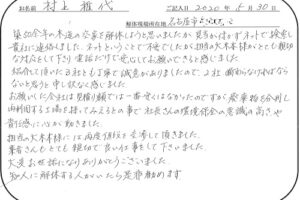 お名前 村上 雅代 ご記入日 2020年 5月 30日
解体現場所在地 名古屋市
築50余年の木造の空家を解体しようと思いましたが、見当が付かずネットで検索し
貴社に連絡しました。ネットということで不安でしたが、担当の大木様がとても親切
な対応をして下さり電話だけで安心してお願いできると感じました。
紹介して頂いた3社とも丁寧で誠意がありましたので、2社断わらなければなら
ないと思うと申し訳なく感じました。
お願いした会社は見積り額では一番安くはなかったのですが、廃棄物を分別し
再利用する様を持ってみえるとの事で社長さんの環境保全の意識の高さや
責任感に心が動きました。
担当の大木様には再度値段を交渉して頂きました。
業者さんもとても親切で良い仕事をして下さいました。
大変お世話になりありがとうございました。
知人に解体する人がいたら是非勧めます